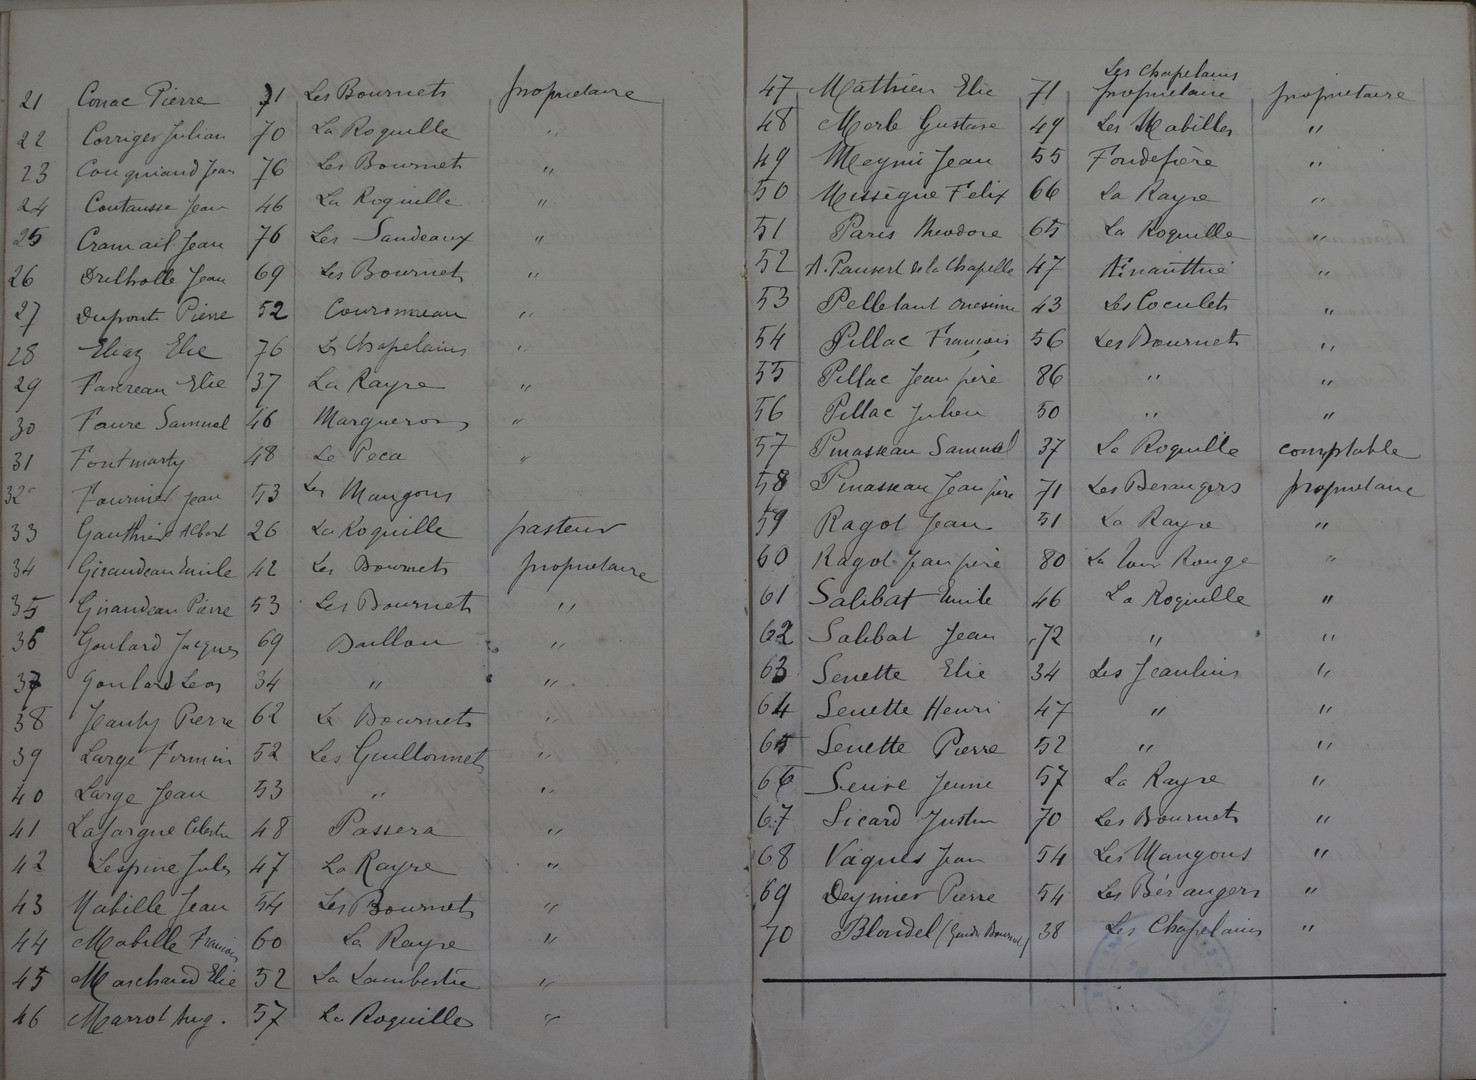 21 Conac Pierre 71 Les Bournets propriétaire
22 Corriger Julian 70 La Roquille "
23 Couquiaud Jean 76 Les Bournets "
24 Coutausse Jean 46 La Roquille "
25 Cramail Jean 76 Les Sandeaux "
26 Drilholle Jean 69 Les Bournets "
27 Dupont Pierre 52 Couronneau "
28 Eliaz Elie 76 Ls Chapelains "
29 Favereau Elie 37 La Rayre "
30 Faure Samuel 46 Margueron "
31 Fontmarty 48 Le Peca "
32 Fournier Jean 53 Les Mangons
33 Gauthier Albert 26 La Roquille pasteur
34 Giraudeau Emile 42 Les Bournets propriétaire
35 Giraudeau Pierre 53 Les Bournets "
36 Goulard Jacques 69 Baillou "
37 Goulard Leon 34 " "
38 Jeanty Pierre 62 Ls Bournets "
39 Large Firmin 52 Les Guillonnets "
40 Large Jean 53 " "
41 Lafargue Celestin 48 Passera "
42 Lespine Jules 47 La Rayre "
43 Mabille Jean 54 Les Bournets "
44 Mabille Francois 60 La Rayre "
45 Marchand Elie 52 La Lambertie "
46 Marrot Aug. 57 La Roquille "
Les Chapelains
47 Mathieu Elie 71 propriétaire propriétaire
48 Merle Gustave 49 Les Mabilles "
49 Meynie Jean 55 Fondefière "
50 Missègue Felix 66 La Rayre "
51 Paris Théodore 65 La Roquille "
52 A. Pauvert de la Chapelle 47 "
53 Pelletant Onesime 43 Les Coculets "
54 Pillac Francois 56 Les Bournets "
55 Pillac Jean père 86 " "
56 Pillac Julien 50 " "
57 Pinasseau Samuel 37 La Roquille comptable
58 Pinasseau Jean père 71 Les Berangers propriétaire
59 Ragot Jean 51 La Rayre "
60 Ragot Jean père 80 La Tour Rouge "
61 Salibat Emile 46 La Roquille "
62 Salibat Jean 72 " "
63 Senette Elie 34 Les Jeaulins "
64 Senette Henri 47 " "
65 Senette Pierre 52 " "
66 Seuve Jenne 57 La Rayre "
67 Sicard Justin 70 Les Bournets "
68 Vaques Jean 54 Les Mangons "
69 Deynier Pierre 54 Les Bérangers "
70 Blondel (Gendre ) 38 Les Chapelains "